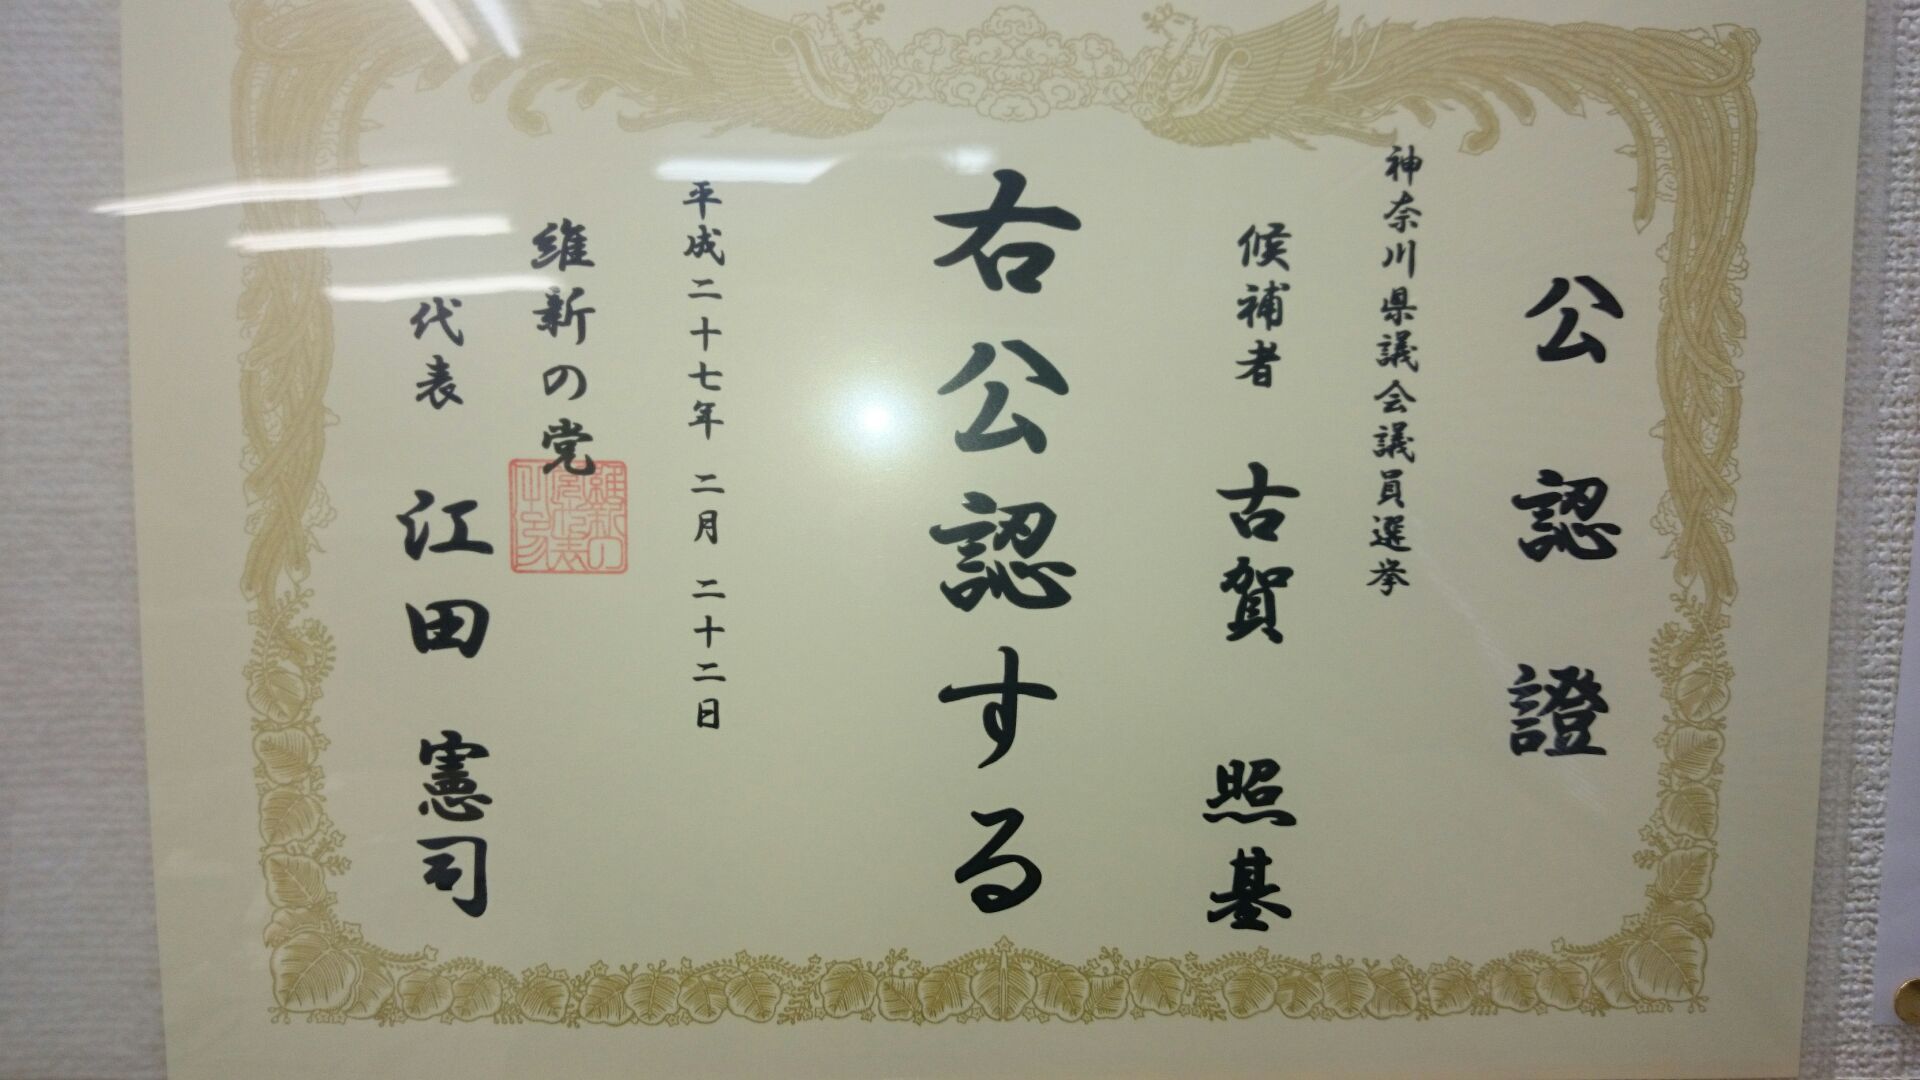 公認證
神奈川県議会議員選挙
候補者 古賀 照基
右公認する
平成二十七年 二月 二十二日
維新の党
代表 江田 憲司